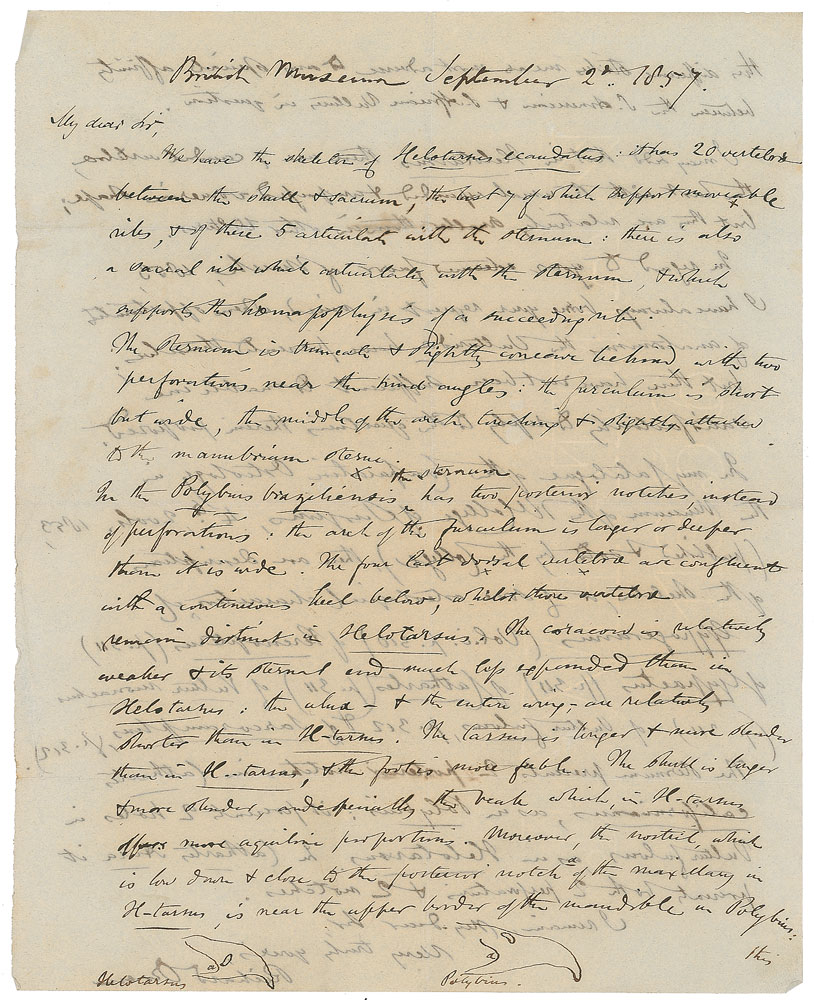 British Museum September 2d. 1857.
My dear Sir,
We have the skeleton of Helotarsus ecaudatus: it has 20 vertebræ
between the skull & sacrum, the last 7 of which support moveable
ribs, & of these 5 articulate with the sternum: there is also
a sacral rib which articulates with the sternum, & which
supports the hæmapophysis of a succeeding rib.
The sternum is truncate & slightly concave behind, with two
perforations near the hind angles: the furculum is short
but wide, the middle of the arch touching & slightly attached
to the manubrium sterni.
In the Polybius braziliensis the sternum has two posterior notches, instead
of perforations: the arch of the furculum is longer or deeper
than it is wide. The four last dorsal vertebræ are confluent
with a continuous keel below, whilst those vertebræ
remain distinct in Helotarsus. The coracoid is relatively
weaker & its sternal end much less expanded than in
Helotarsus: the ulna - & the entire wing - are relatively
shorter than in H-tarsus. The tarsus is longer & more slender
than in H-tarsus, & the foot is more feeble. The skull is larger
& more slender, and especially the beak which, in H-tarsus
offers more aquiline proportions. Moreover, the nostril, which
is low down & close to the posterior notch a of the maxillary in
H-tarsus, is near the upper border of the mandible in Polybius:
this
Helotarsus a
Polybius. a